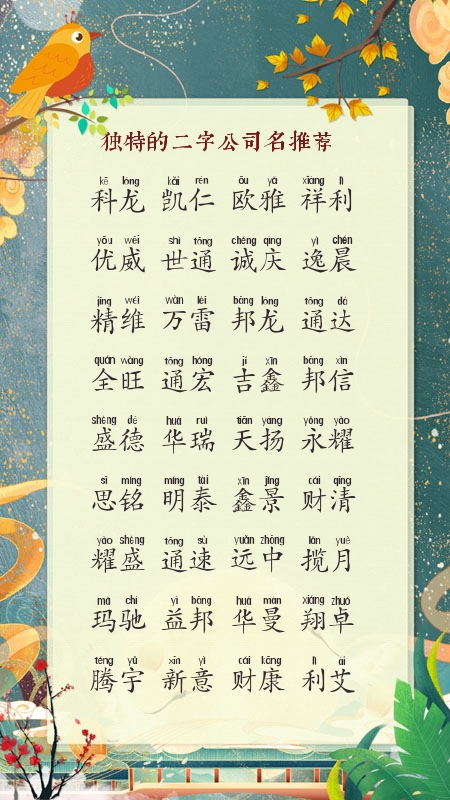 独特的二字公司名推荐
kē lóng kǎi rén ōu yǎ xiáng lì
科龙 凯仁 欧雅 祥利
yōu wēi shì tōng chéng qìng yì chén
优威 世通 诚庆 逸晨
jīng wéi wàn léi bāng lóng tōng dá
精维 万雷 邦龙 通达
quán wàng tōng hóng jí xīn bāng xìn
全旺 通宏 吉鑫 邦信
shèng dé huá ruì tiān yáng yǒng yào
盛德 华瑞 天扬 永耀
sī míng míng tài xīn jǐng cái qīng
思铭 明泰 鑫景 财清
yào shèng tōng sù yuǎn zhōng lǎn yuè
耀盛 通速 远中 揽月
mǎ chí yì bāng huá màn xiáng zhuó
玛驰 益邦 华曼 翔卓
téng yǔ xīn yì cái kāng lì ài
腾宇 新意 财康 利艾